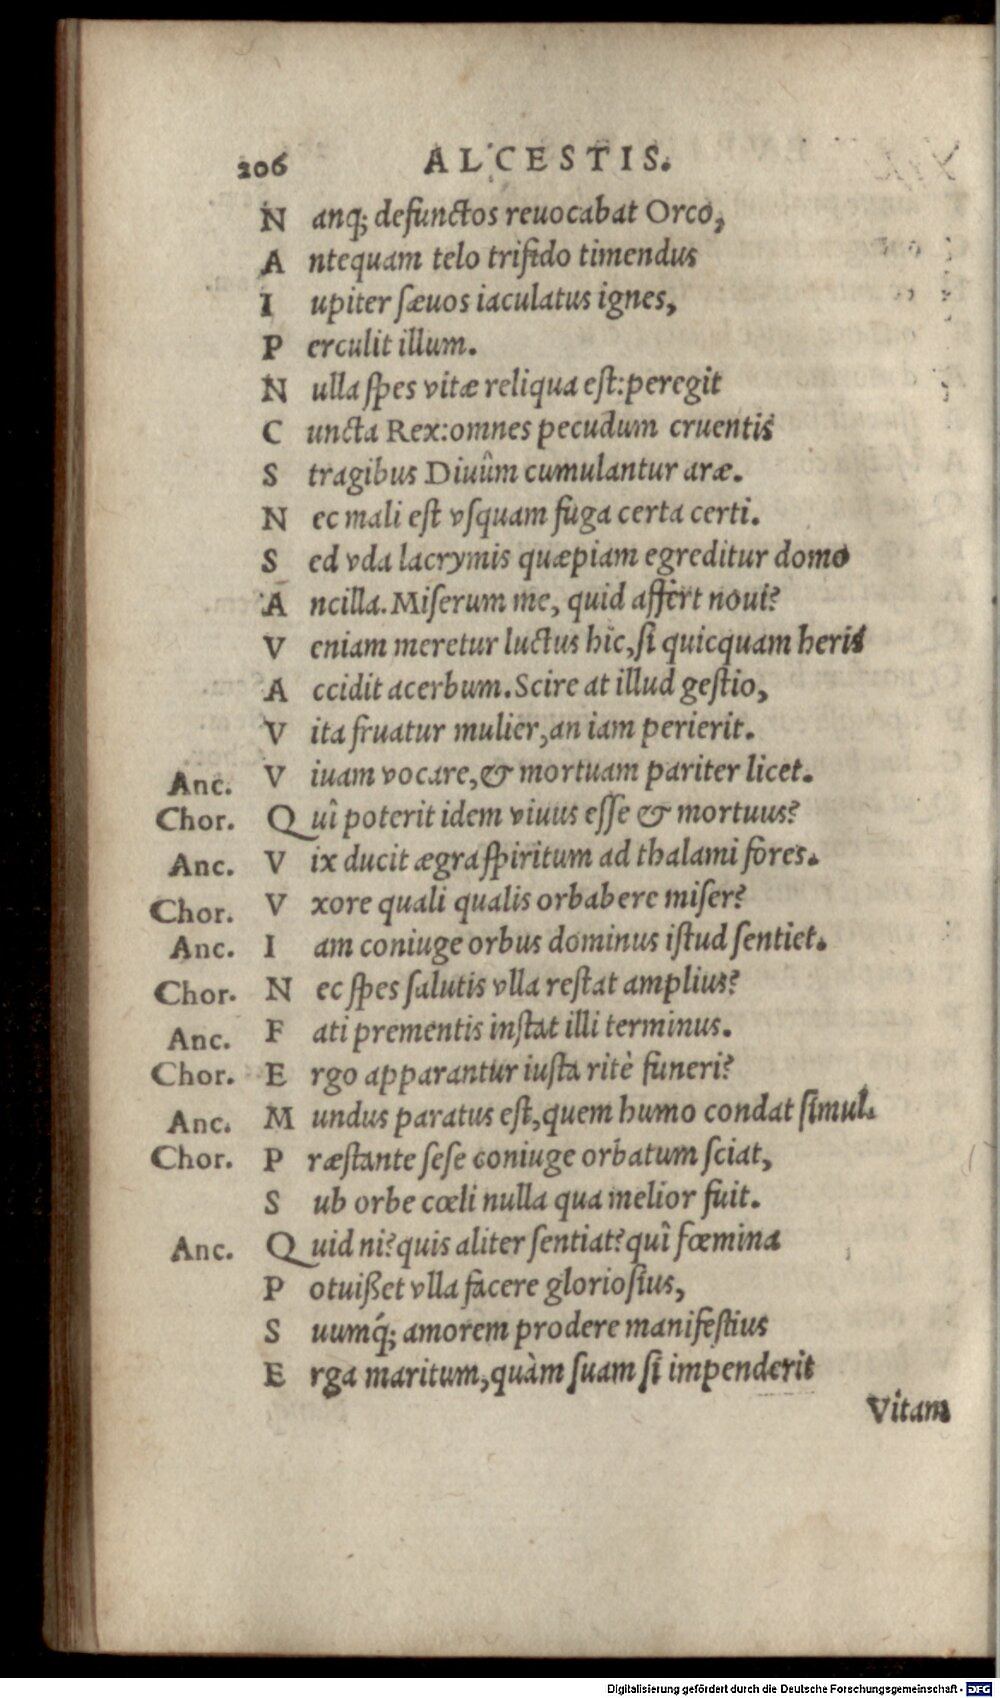 206 ALCESTIS.
Nanq; defunctos reuocabat Orco,
Antequam telo trifido timendus
Iupiter sæuos iaculatus ignes,
Perculit illum.
Nulla spes vitæ reliqua est:peregit
Cuncta Rex:omnes pecudum cruentis
Stragibus Diuûm cumulantur aræ.
Nec mali est vsquam fuga certa certi.
Sed vda lacrymis quæpiam egreditur domo
Ancilla. Miserum me, quid affert noui?
Veniam meretur luctus hic, si quicquam heris
Accidit acerbum. Scire at illud gestio,
Vita fruatur mulier, an iam perierit.
Anc. Viuam vocare, & mortuam pariter licet.
Chor. Quî poterit idem viuus esse & mortuus?
Anc. Vix ducit ægra spiritum ad thalami fores.
Chor. Vxore quali qualis orbabere miser?
Anc. Iam coniuge orbus dominus istud sentiet.
Chor. Nec spes salutis vlla restat amplius?
Anc. Fati prementis instat illi terminus.
Chor. Ergo apparantur iusta ritè funeri?
Anc. Mundus paratus est, quem humo condat simul.
Chor. Præstante sese coniuge orbatum sciat,
Sub orbe cœli nulla qua melior fuit.
Anc. Quid ni? quis aliter sentiat? quî fœmina
Potuißet vlla facere gloriosius,
Suumq́; amorem prodere manifestius
Erga maritum, quàm suam si impenderit
Vitam
Digitalisierung gefördert durch die Deutsche Forschungsgemeinschaft - DFG